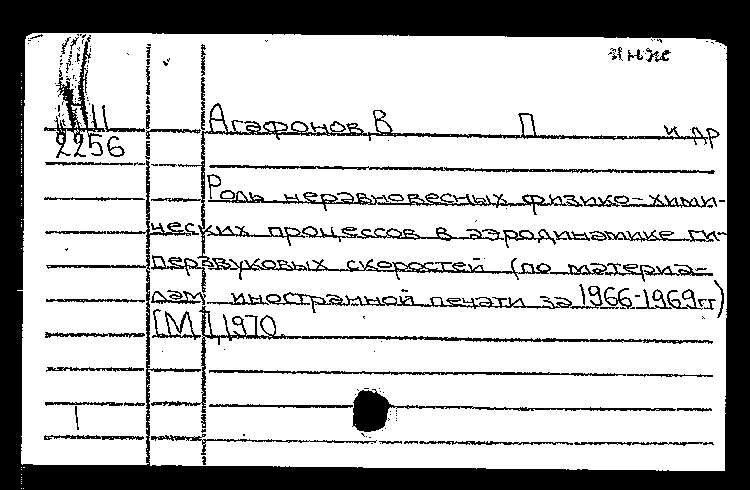 Агафонов, В П и др
2256
Роль неравновесных физико-хими-
ческих процессов в аэродинамике ги-
перзвуковых скоростей (по материа-
лам иностранной печати за 1966-1969гг)
[М], 1970